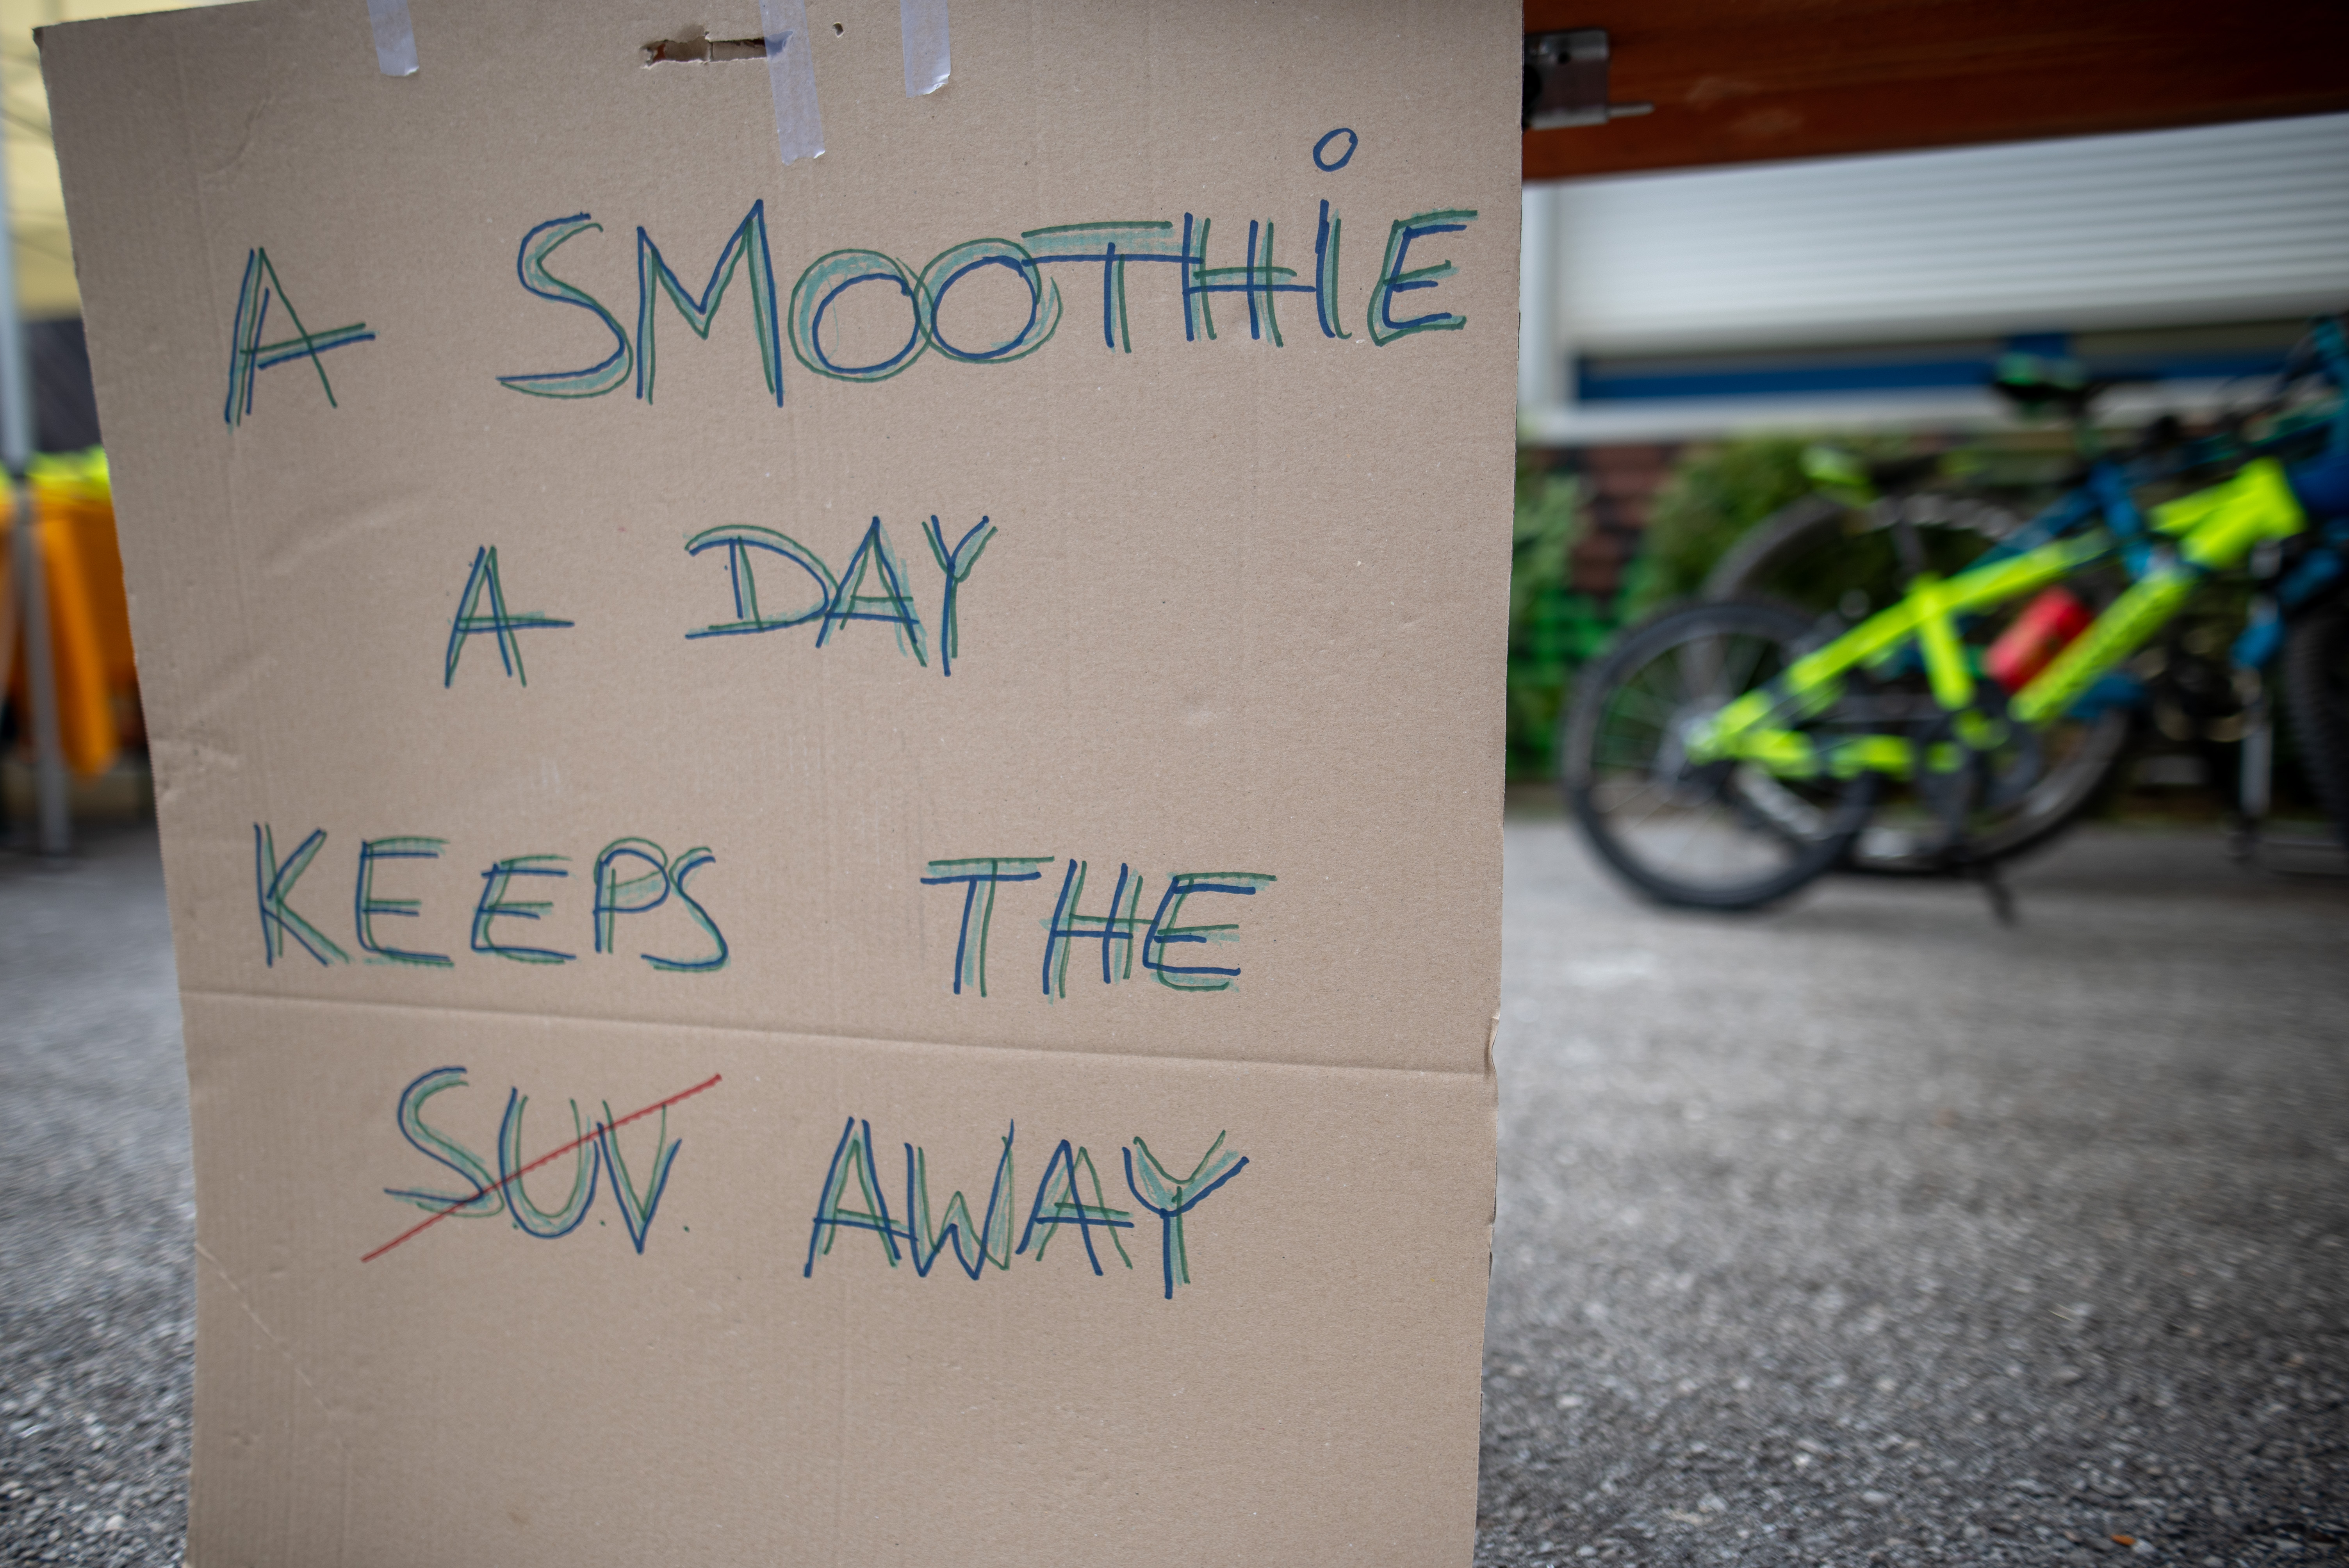 A SMOOTHiE
A DAY
KEEPS THE
SU.V. AWAY